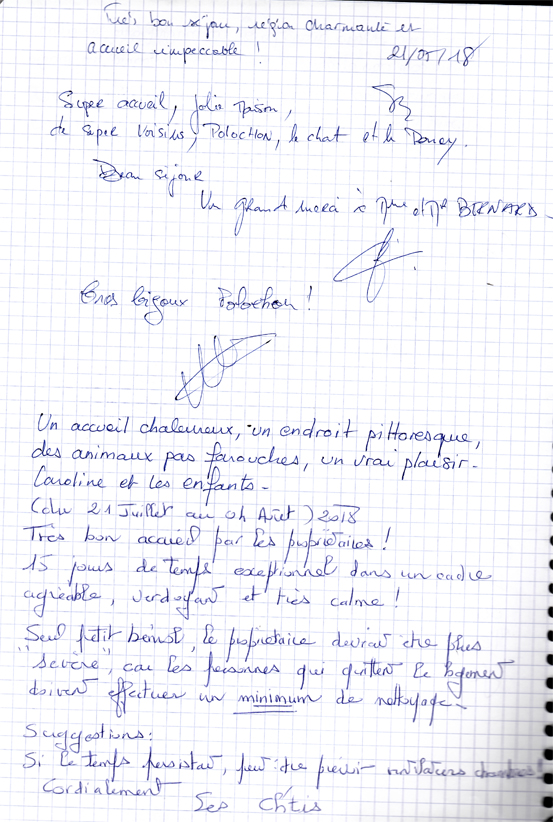 Très bon séjour, région charmante et
accueil impeccable !
21/05/18
Super accueil, Jolie maison,
de super voisins, Polochon, le chat et le Poney.
Beau séjour
Un grand merci à Mme et Mr BERNARD.
Gros bisoux Polochon !
Un accueil chaleureux, un endroit pittoresque,
des animaux pas farouches, un vrai plaisir.
Caroline et les enfants.
(du 21 Juillet au 04 Août) 2018
Très bon accueil par les propriétaires !
15 jours de temps exceptionnel dans un cadre
agréable, verdoyant et très calme !
Seul petit bémol, le propriétaire devrait être plus
"sévère", car les personnes qui quittent le logement
doivent effectuer un minimum de nettoyage.
Suggestions :
Si le temps persistait, peut-être prévoir ventilateurs chambres !
Cordialement
Les Ch'tis